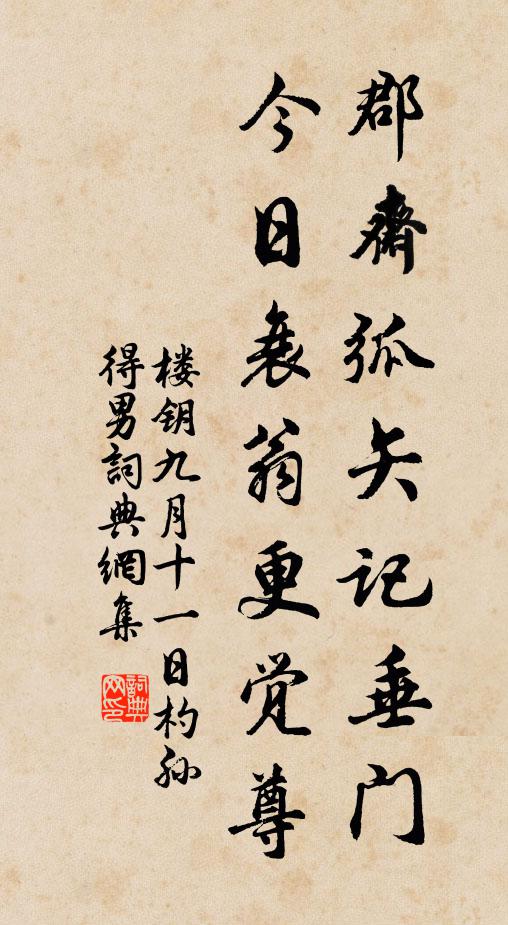 郡齋弧矢记垂门
今日衰翁更觉尊
楼钥九月十一日杓孙
得男詞典網集
詞典网印